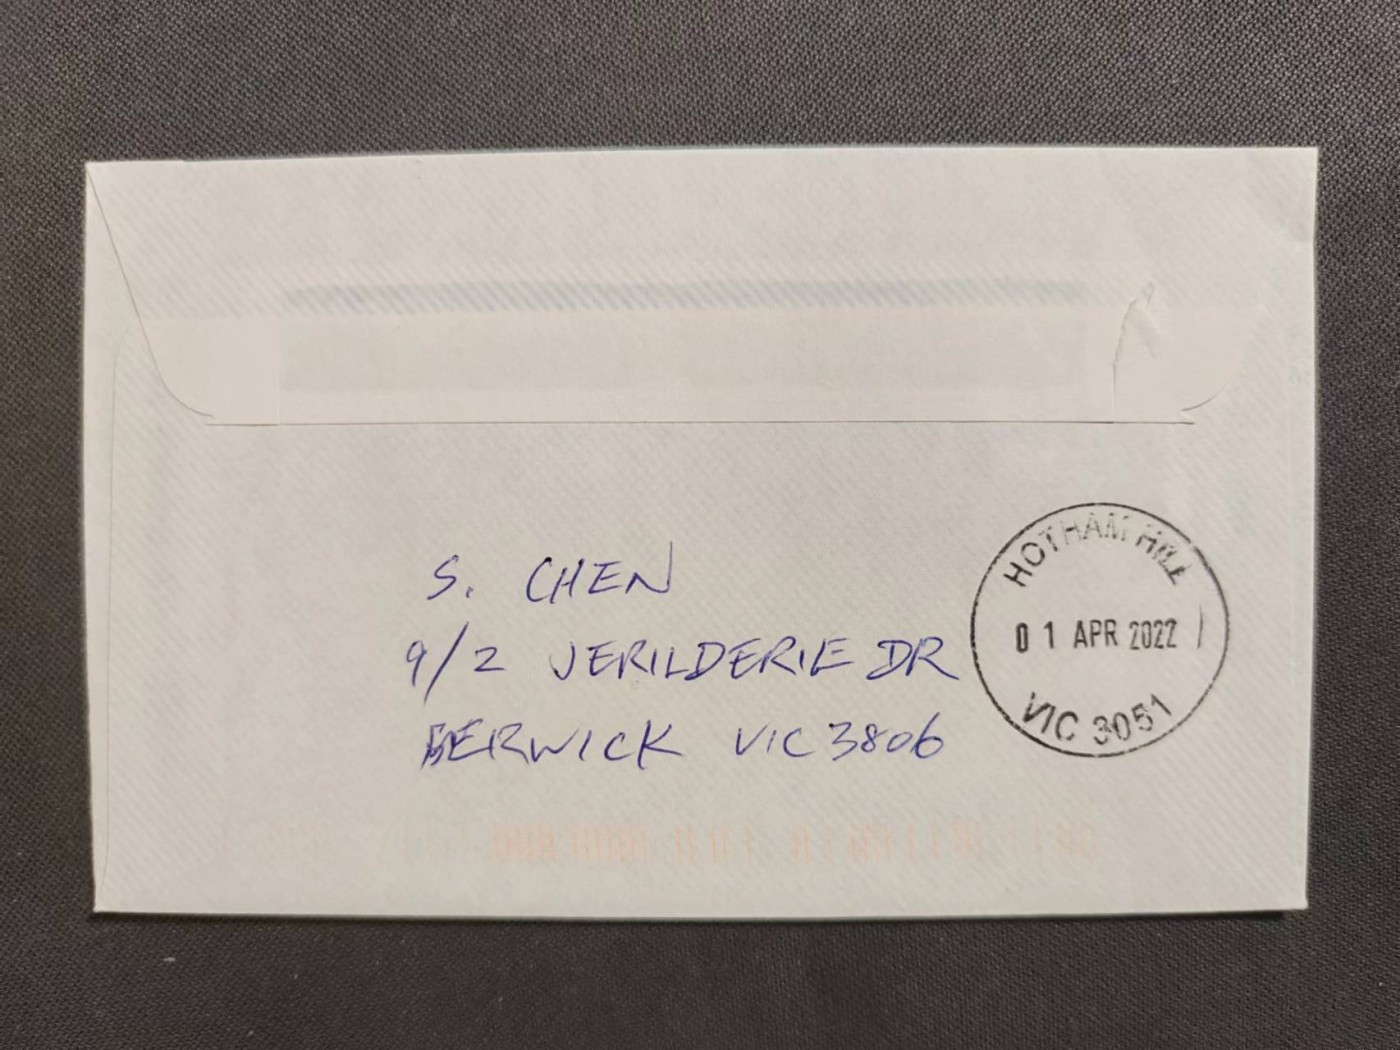 S. CHEN
9/2 JERILDERIE DR
BERWICK VIC 3806
HOTHAM HILL
01 APR 2022
VIC 3051